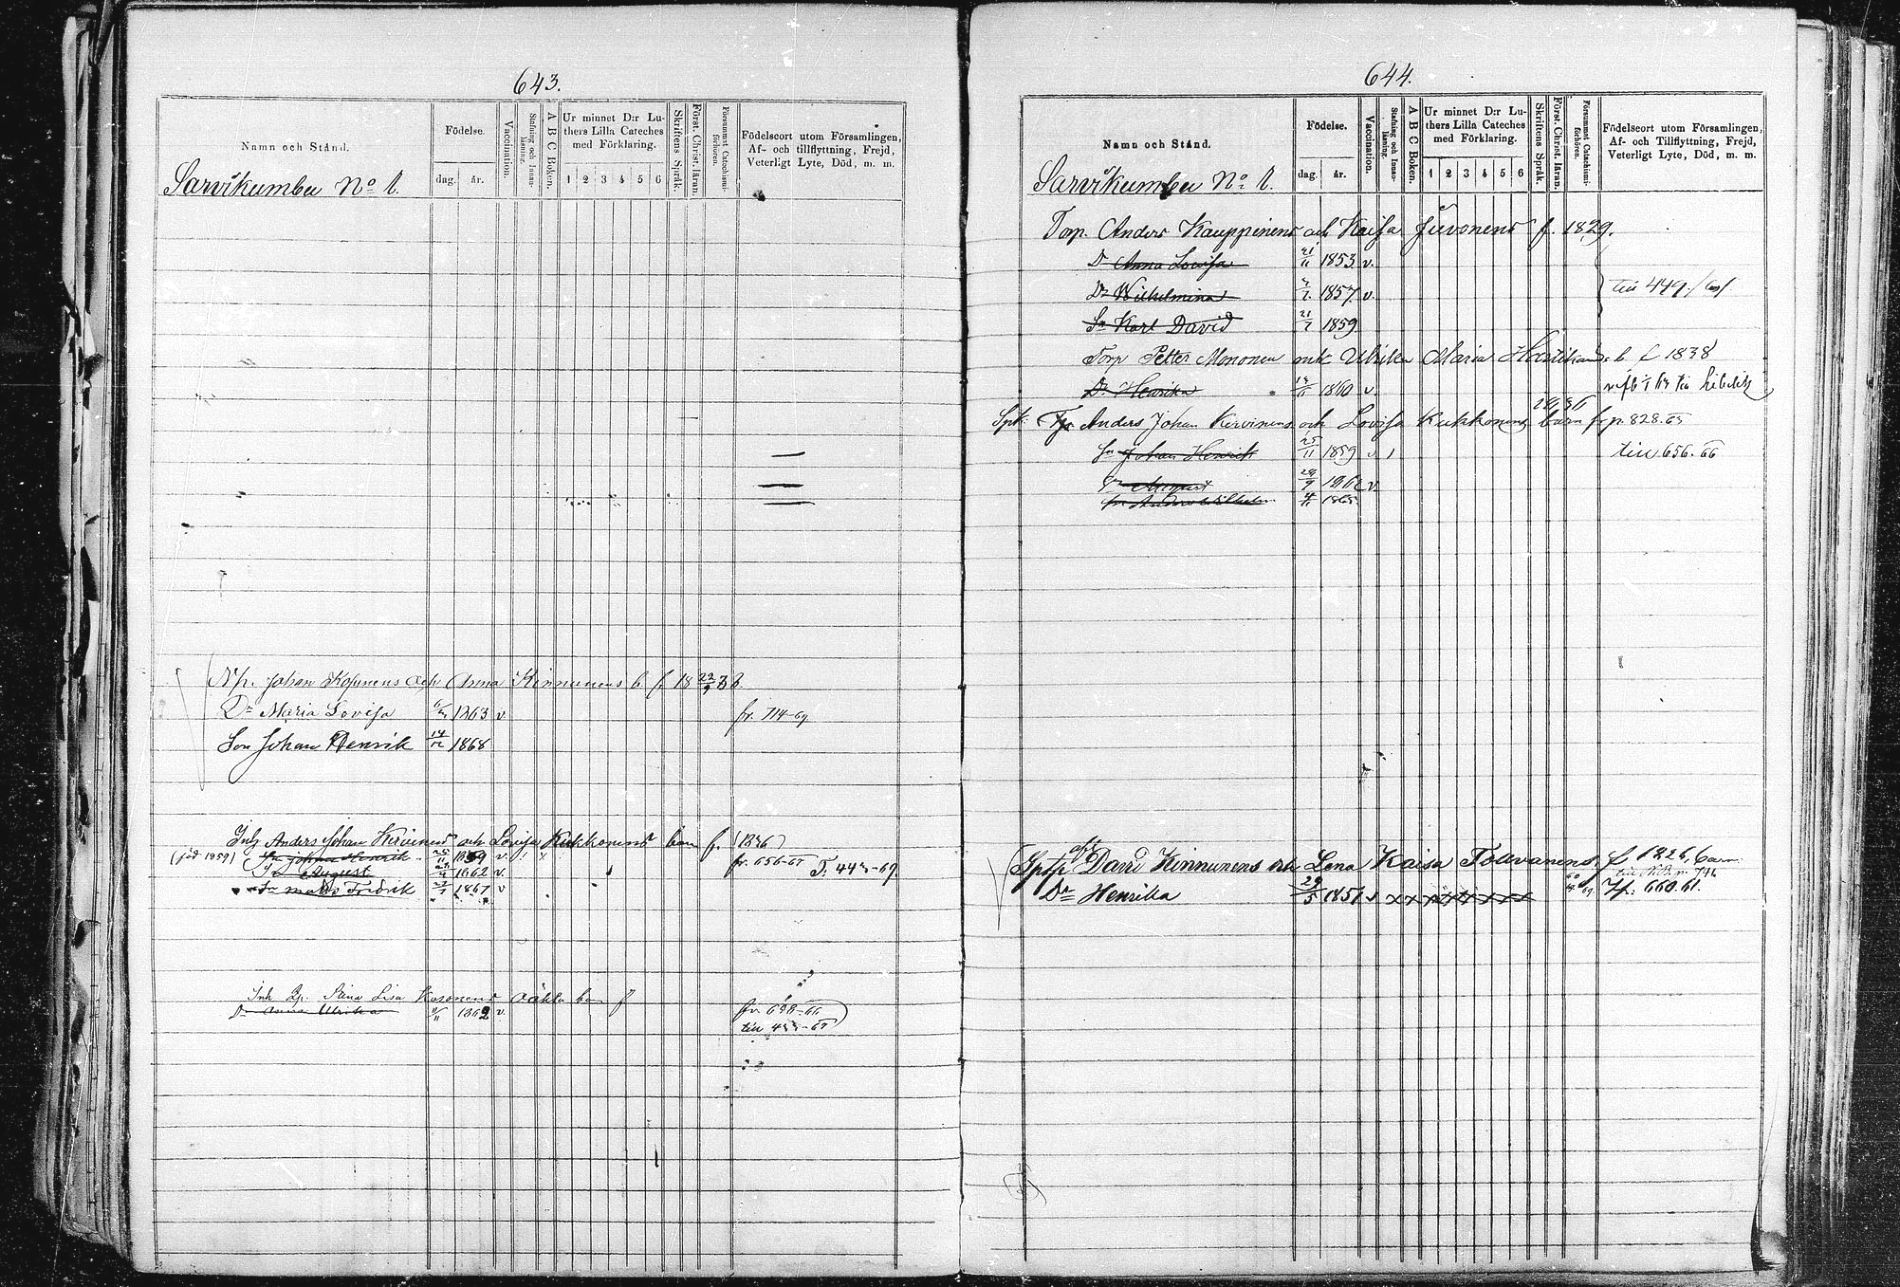 643.
Namn och Stånd.
Födelse.
dag. år.
Vaccination.
Stafning och Innanläsning.
A B C Boken.
Ur minnet D:r Luthers Lilla Cateches med Förklaring.
1 2 3 4 5 6
Skriftens Språk.
Först. Christ. läran.
Försummat Catechismiförhören.
Födelseort utom Församlingen, Af- och tillflyttning, Frejd, Veterligt Lyte, Död, m. m.
Sarvikumbu No 1.
Johan Kopinens och Anna Kinnunens b. f. 18
Dr Maria Lovisa 1863 v. fr. 714-69
Son Johan Henrik 14/12 1868
Inh Anders Johan Kirvinens och Lovisa Kukkonens barn f. (1836)
(föd 1859) Sn Johan Henrik 25/11 1859 v fr. 656-67
Sn August 1862 v. T. 44 -69.
Sn Matts Fredrik 1867 v
Inh Stina Lisa Kosonens oäkta barn f
Dr Anna Ulrika 1862 v. fr. 698-66
till 4 -67
644.
Namn och Stånd.
Födelse.
dag. år.
Vaccination.
Stafning och Innanläsning.
A B C Boken.
Ur minnet D:r Luthers Lilla Cateches med Förklaring.
1 2 3 4 5 6
Skriftens Språk.
Först. Christ. läran.
Försummat Catechismiförhören.
Födelseort utom Församlingen, Af- och Tillflyttning, Frejd, Veterligt Lyte, Död, m. m.
Sarvikumbu No 1.
Torp. Anders Kauppinens och Kaisa Juvonens f. 1829.
Dr Anna Lovisa 21/11 1853 v.
Dr Wilhelmina 1857 v. till 449
Sn Karl David 21/7 1859
Torp Petter Mononen och Ulrika Maria b. f 1838
Dr Henrika 1860 v. till Libelits
Anders Johan Kirvinens och Lovisa Kukkonens barn fr p. 828.65
Sn Johan Henrik 25/11 1859 v till 656.66
Sn August 1862 v
Sn Anders Wilhelm 1865
David Kinnunens och Lena Kaisa Tolvanens f 1826, barn
Dr Henrika 29/5 1851 v x x x x x x x x fr. 660.61.